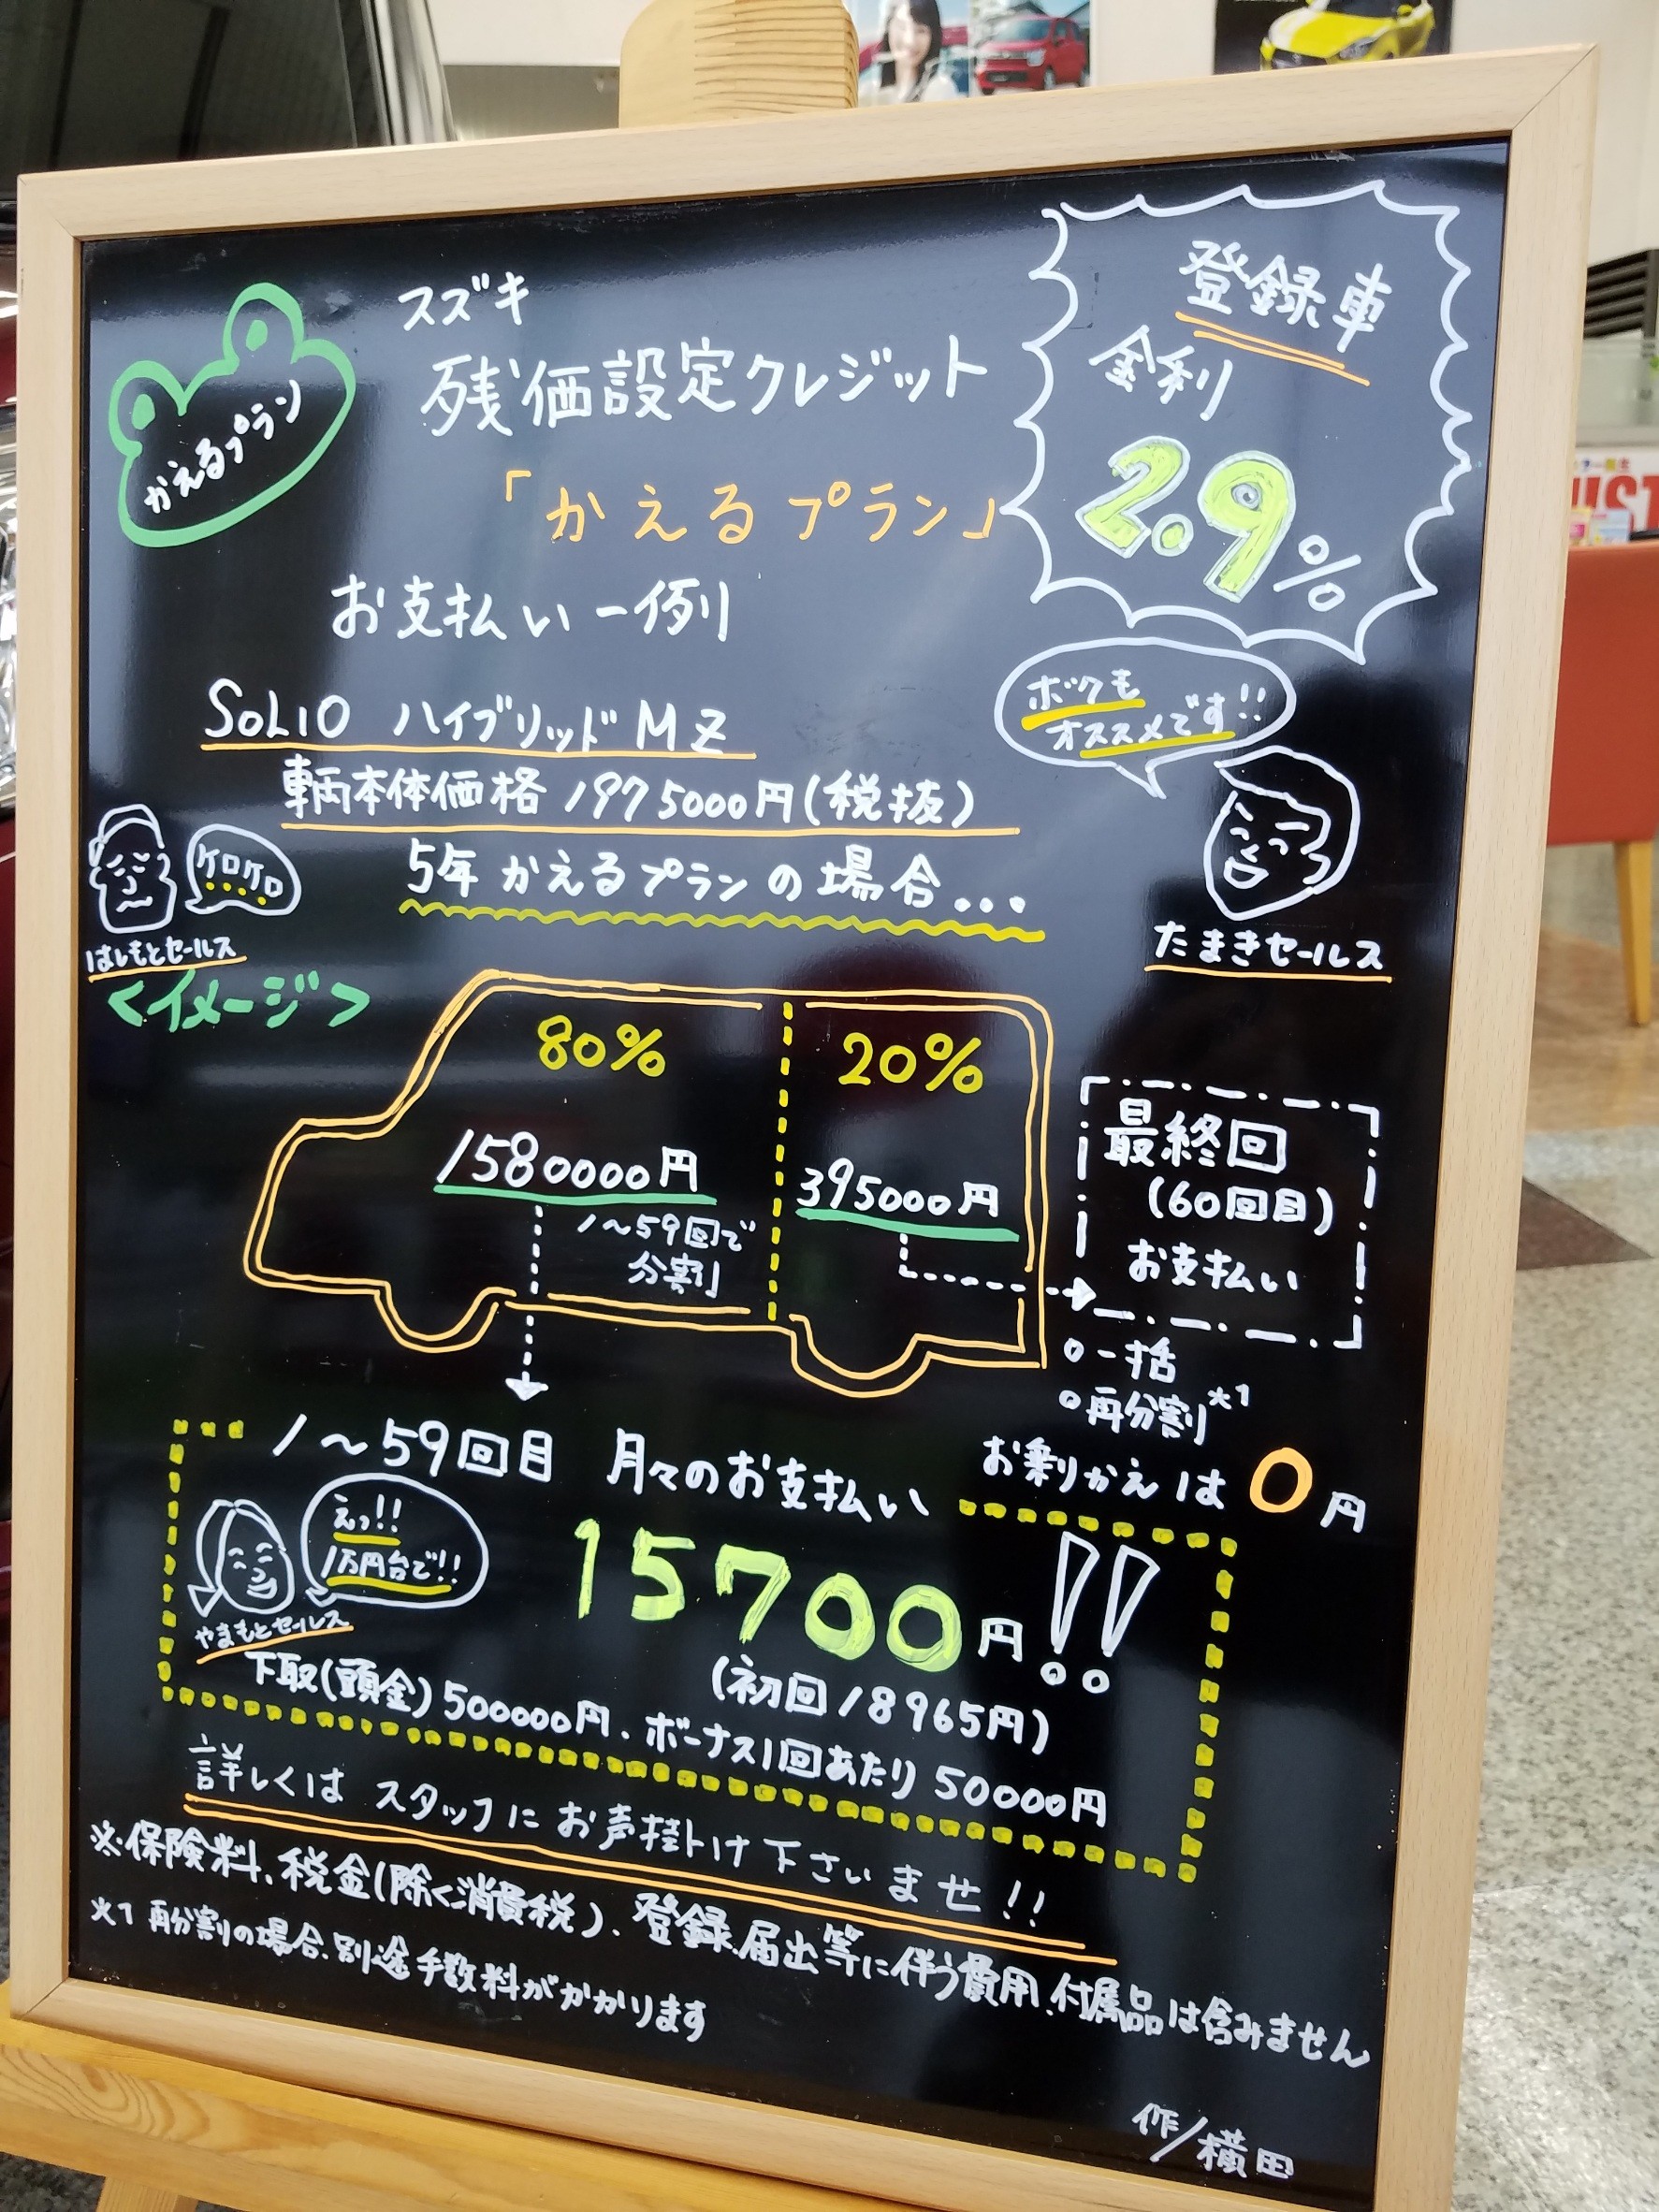 かえるプラン
スズキ
残価設定クレジット
「かえるプラン」
登録車
金利
2.9%
お支払い一例
ボクも
オススメです!!
SOLIO ハイブリッドMZ
車両本体価格 1975000円(税抜)
5年 かえるプランの場合...
ケロケロ
はしもとセールス
たまきセールス
<イメージ>
80%
20%
1580000円
395000円
1〜59回で
分割
最終回
(60回目)
お支払い
○一括
○再分割*1
お乗りかえは0円
1〜59回目 月々のお支払い
えっ!!
1万円台で!!
やまもとセールス
15700円!!
(初回18965円)
下取(頭金)500000円、ボーナス1回あたり50000円
詳しくは スタッフに お声掛け下さいませ!!
※保険料、税金(除く消費税)、登録、届出等に伴う費用、付属品は含みません
*1 再分割の場合、別途手数料がかかります
作/横田
UST